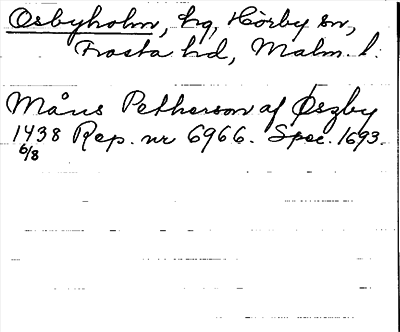 Osbyholm, hg, Hörby sn,
Frosta hd, Malm. l.
Måns Petherson af Øszby
1438 Rep. nr 6966. Spec. 1693.
6/8